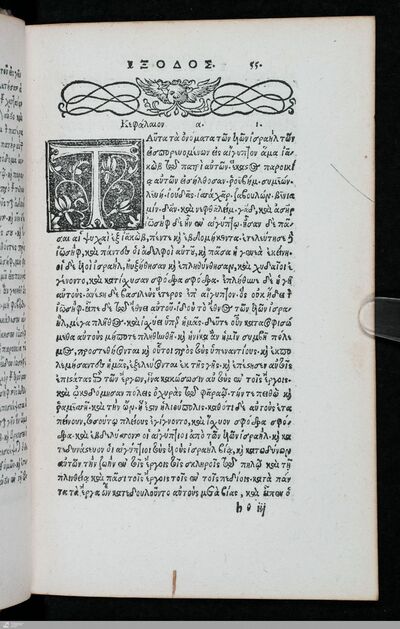 ΕΞΟΔΟΣ. 55.
Κεφάλαιον α. 1.
Τ Αῦτα τὰ ὀνόματα τῶν ἱῶν ἰσραὴλ τῶν
ἐσπορευομένων εἰς αἴγυπτον ἅμα ἰα-
κὼβ τῷ πατρὶ αὐτῶν. ἕκαστος παροικί
ᾳ αὐτῶν ἐσήλθοσαν. ῥουβὴμ. συμεών.
λευὶ. ἰούδας. ἰσάχαρ. ζαβουλών. βενια
μίν. δὰν. καὶ νεφθαλείμ. γάδ. καὶ ἀσήρ
ἰωσὴφ δὲ ἦν ἐν αἰγύπτῳ. ἦσαν δὲ πᾶ-
σαι αἱ ψυχαὶ ἐξ ἰακὼβ, πέντε καὶ ἑβδομήκοντα. ἐτελεύτησε δὲ
ἰωσὴφ, καὶ πάντες οἱ ἀδελφοὶ αὐτοῦ, καὶ πᾶσα ἡ γενεὰ ἐκείνη.
οἱ δὲ ἱοὶ ἰσραὴλ, ηὐξήθησαν καὶ ἐπληθύνθησαν, καὶ χυδαῖοι ἐ
γένοντο, καὶ κατίσχυσαν σφόδρα σφόδρα. ἐπλήθυνε δὲ ἡ γῆ
αὐτούς. ἀνέστη δὲ βασιλεὺς ἕτερος ἐπ᾽ αἴγυπτον. ὃς οὐκ ᾔδει τὸν
ἰωσήφ. εἶπε δὲ τῷ ἔθνει αὐτοῦ. ἰδοὺ τὸ ἔθνος τῶν ἱῶν ἰσρα
ὴλ, μέγα πλῆθος. καὶ ἰσχύει ὑπὲρ ἡμᾶς. δεῦτε οὖν κατασοφισώ
μεθα αὐτοὺς μήποτε πληθυνθῇ. καὶ ἡνίκα ἂν ἡμῖν συμβῇ πόλε
μος, προστεθήσονται καὶ οὗτοι πρὸς τοὺς ὑπεναντίους. καὶ ἐκπο
λεμήσαντες ἡμᾶς, ἐξελεύσονται ἐκ τῆς γῆς. καὶ ἐπέστησεν αὐτοῖς
ἐπιστάτας τῶν ἔργων, ἵνα κακώσωσιν αὐτοὺς ἐν τοῖς ἔργοις.
καὶ ᾠκοδόμησαν πόλεις ὀχυρὰς τῷ φαραώ. τήν τε πειθὼ καὶ
ῥαμεσσῆ. καὶ τὴν ὤν. ἥ ἐστιν ἡλιούπολις. καθότι δὲ αὐτοὺς ἐτα
πείνουν, τοσούτῳ πλείους ἐγίγνοντο, καὶ ἴσχυον σφόδρα σφό
δρα. καὶ ἐβδελύσσοντο οἱ αἰγύπτιοι ἀπὸ τῶν ἱῶν ἰσραήλ. καὶ κα
τεδυνάστευον οἱ αἰγύπτιοι τοὺς ἱοὺς ἰσραὴλ βίᾳ, καὶ κατωδύνων
αὐτῶν τὴν ζωὴν ἐν τοῖς ἔργοις τοῖς σκληροῖς τῷ πηλῷ καὶ τῇ
πλινθείᾳ καὶ πᾶσι τοῖς ἔργοις τοῖς ἐν τοῖς πεδίοις. κατὰ πάν
τα τὰ ἔργα ὧν κατεδουλοῦντο αὐτοὺς μετὰ βίας. καὶ εἶπεν ὁ
h iij